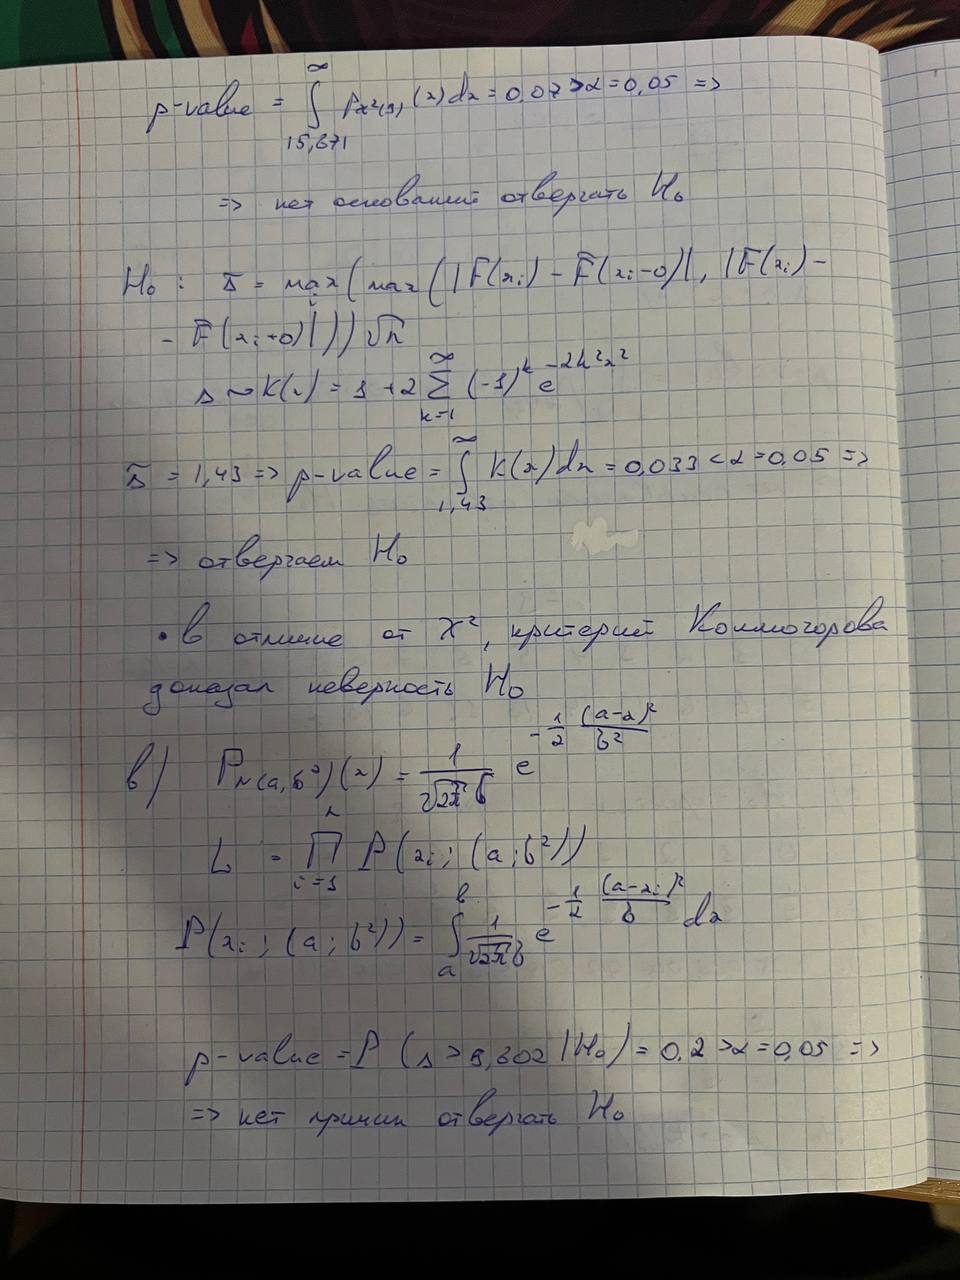 p-value = ∫_{15,671}^{∞} p_{χ²(9)}(x)dx = 0,07 > α = 0,05 =>
=> нет оснований отвергать H₀
H₀ : Δ̃ = max_i(max(|F(xᵢ) - F̂(xᵢ-0)|, |F(xᵢ) -
- F̂(xᵢ+0)|))√n
Δ ~ K(x) = 1 + 2 ∑_{k=1}^{∞} (-1)^k e^{-2k²x²}
Δ̃ = 1,43 => p-value = ∫_{1,43}^{∞} k(x)dx = 0,033 < α = 0,05 =>
=> отвергаем H₀
• в отличие от χ², критерий Колмогорова
доказал неверность H₀
в) P_{N(a,б²)}(x) = 1/(√2π б) e^{-1/2 (a-x)²/б²}
L = ∏_{i=1}^{n} P(xᵢ; (a; б²))
P(xᵢ; (a; б²)) = ∫_{a}^{b} 1/(√2π б) e^{-1/2 (a-xᵢ)²/б} dx
p-value = P (Δ > 9,302 | H₀) = 0,2 > α = 0,05 =>
=> нет причин отвергать H₀